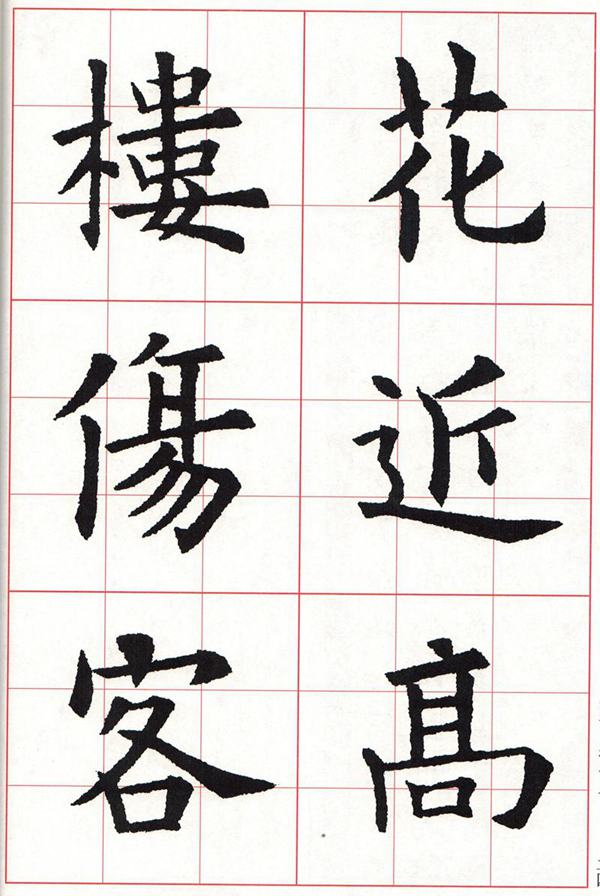 花近髙
樓傷客